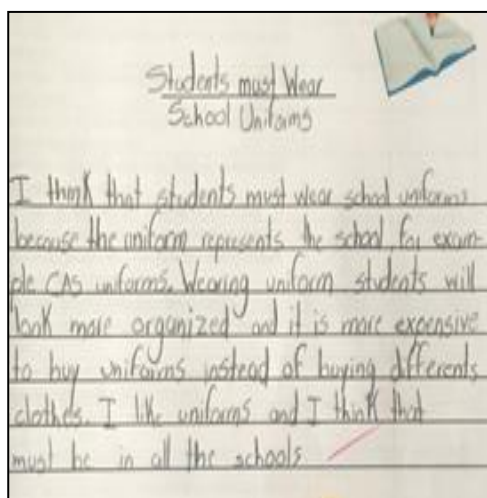 Students must Wear
School Uniforms
I think that students must wear school uniforms
because the uniform represents the school, for exam-
ple CAS uniforms. Wearing uniform students will
look more organized and it is more expensive
to buy uniforms instead of buying differents
clothes. I like uniforms and I think that
must be in all the schools